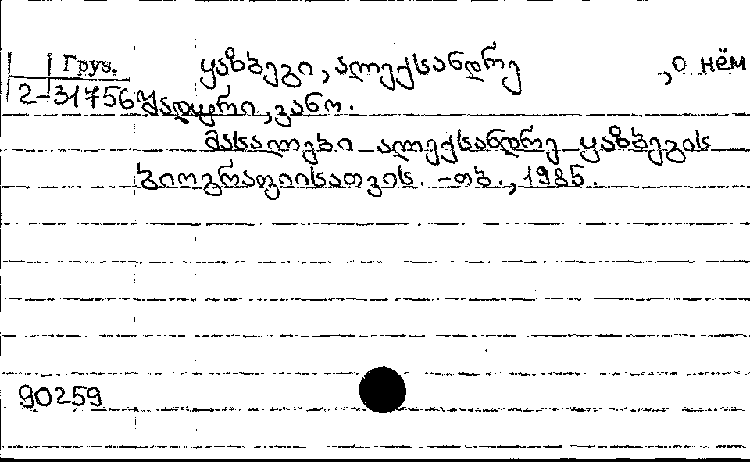 Груз. ყაზბეგი, ალექსანდრე , о нём
2-31756 შადური, ვანო.
მასალები ალექსანდრე ყაზბეგის
ბიოგრაფიისათვის. - თბ., 1985.
90259